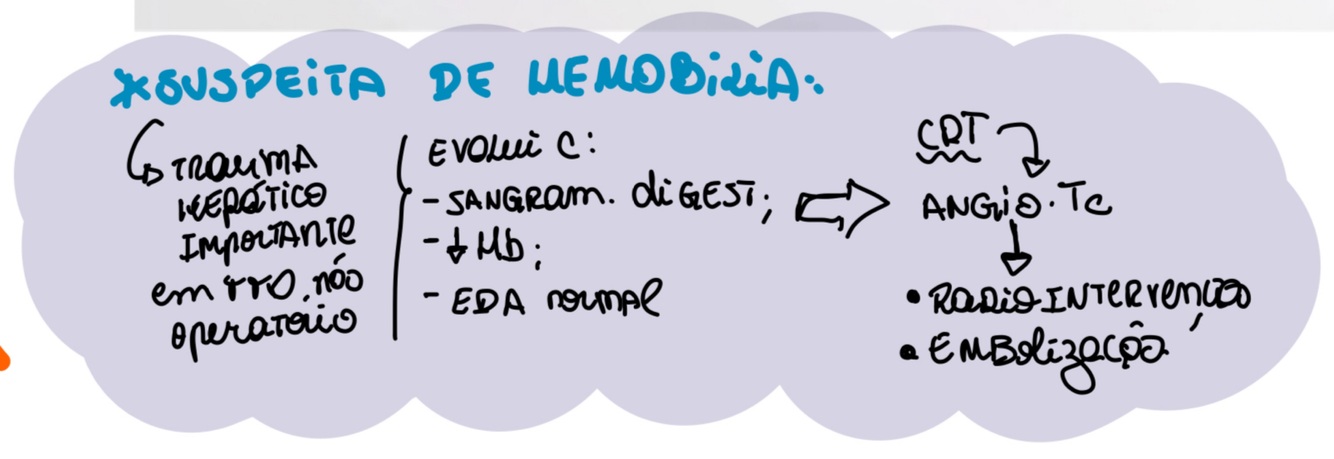 *SUSPEITA DE HEMOBILIA.
TRAUMA
HEPÁTICO
IMPORTANTE
em TTO. não
operatório
EVOLUI C:
- SANGRAM. diGEST;
- ↓ Hb;
- EDA normal
CDT
ANGIO.TC
• RADIOINTERVENÇÃO
• EMBOLIZAÇÃO